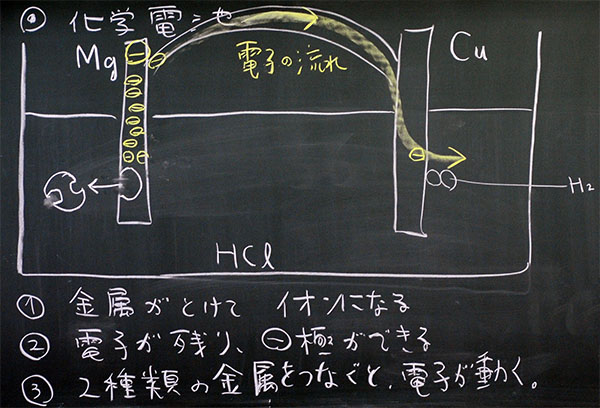 ◎ 化学電池
Mg
Cu
電子の流れ
H₂
HCl
① 金属がとけて イオンになる
② 電子が残り、⊖極ができる
③ 2種類の金属をつなぐと、電子が動く。